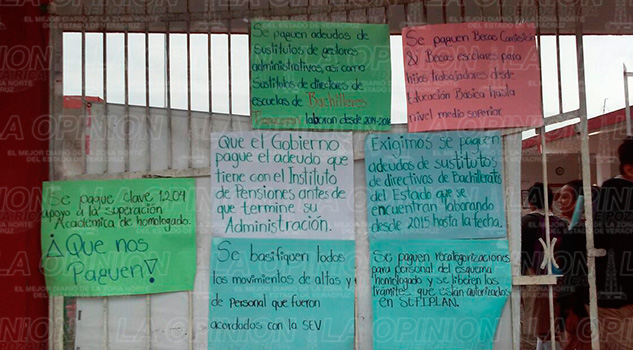 Se paguen adeudos de
Sustitutos de gestores
administrativos, así como
Sustitutos de directores de
escuelas de Bachilleres
laboran desde 2014-2016
Se paguen Becas Comisión
& Becas escolares para
hijos trabajadores desde
Educación Básica hasta
nivel medio superior.
Que el Gobierno
pague el adeudo que
tiene con el Instituto
de Pensiones antes de
que termine su
Administración.
Exigimos se paguen
adeudos de sustitutos
de directivos de Bachillerato
del Estado que se
encuentran laborando
desde 2015 hasta la fecha.
Se pague clave 1209
apoyo a la superación
Academica de homologado.
¡Que nos
Paguen!
Se basifiquen todos
los movimientos de altas y
de personal que fueron
acordados con la SEV
Se paguen
para personal del esquema
homologado y se liberen los
trámites que están autorizados
en SEFIPLAN.
LA OPINIÓN
EL MEJOR DIARIO DE LA ZONA NORTE
DEL ESTADO DE VERACRUZ